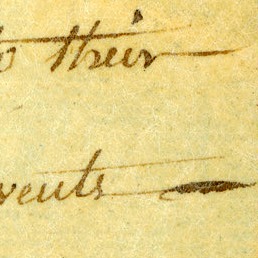 to their
vents